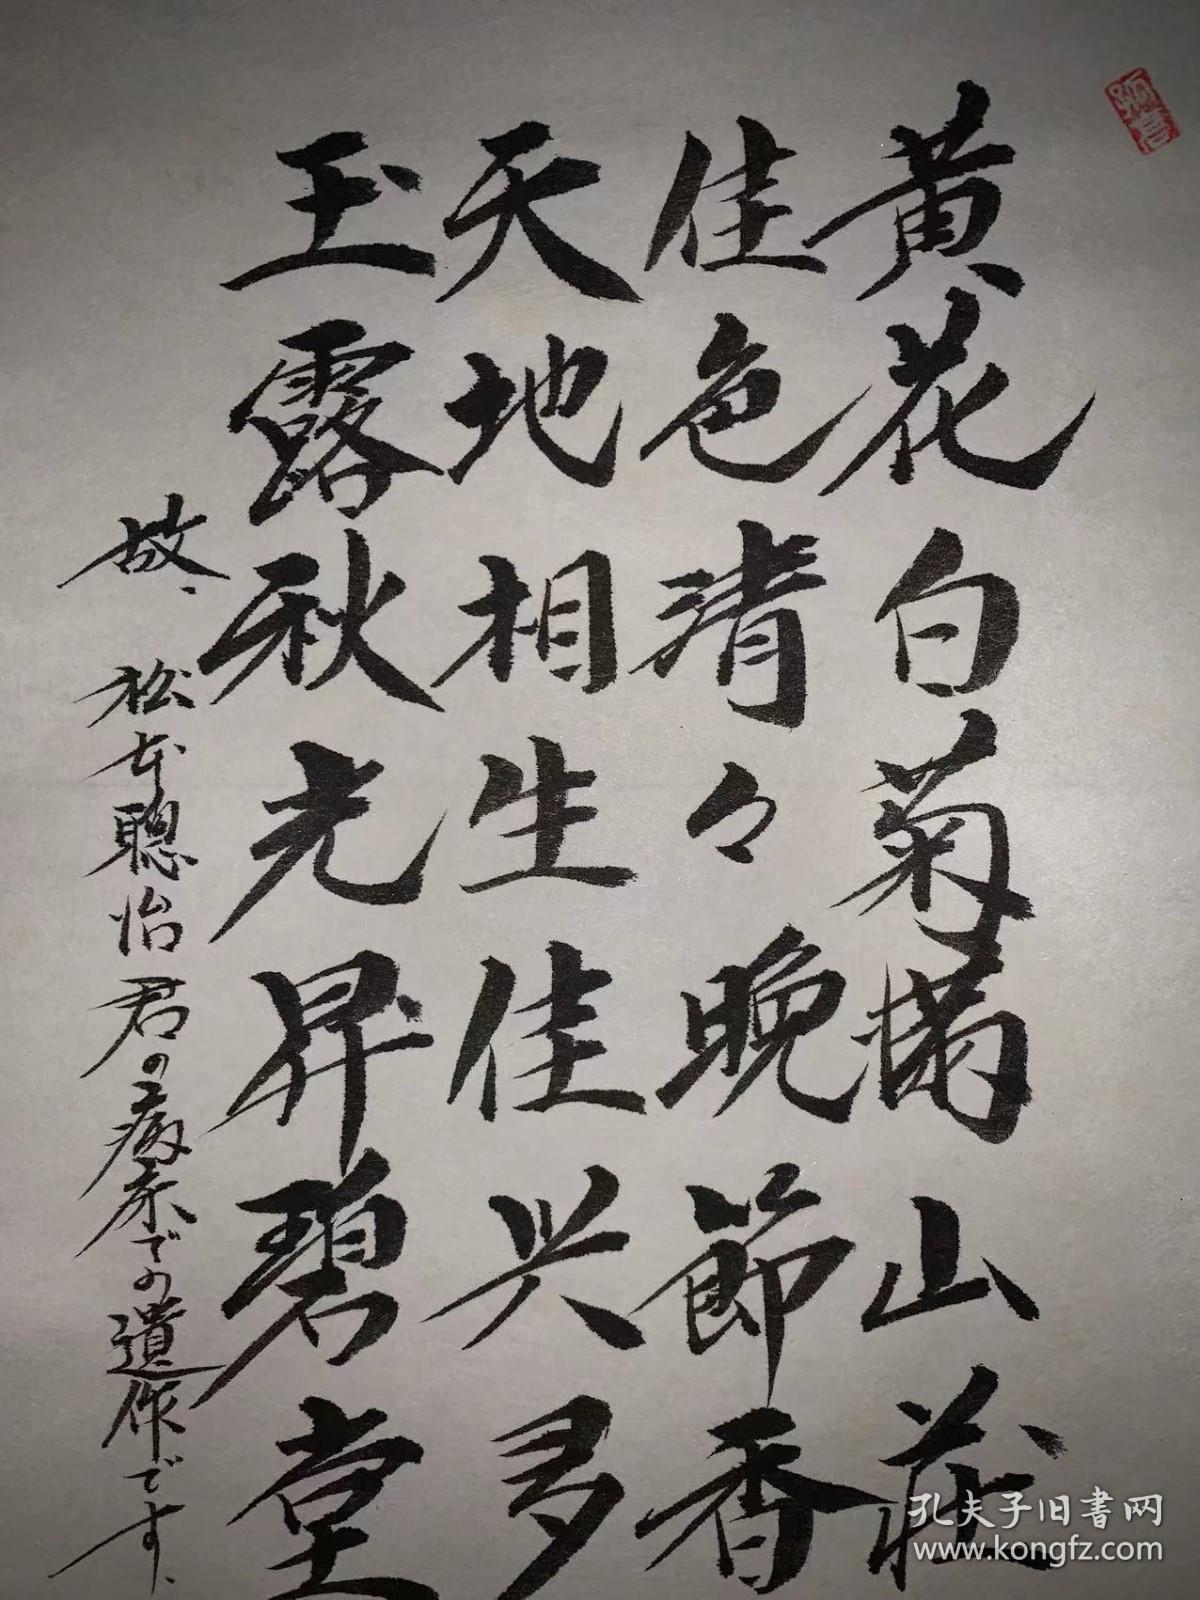 黄花白菊満山荘
佳色清々晩節香
天地相生佳兴多
玉露秋光昇碧堂
故、松本聰怡君の病床での遺作です、
孔夫子旧书网
www.kongfz.com